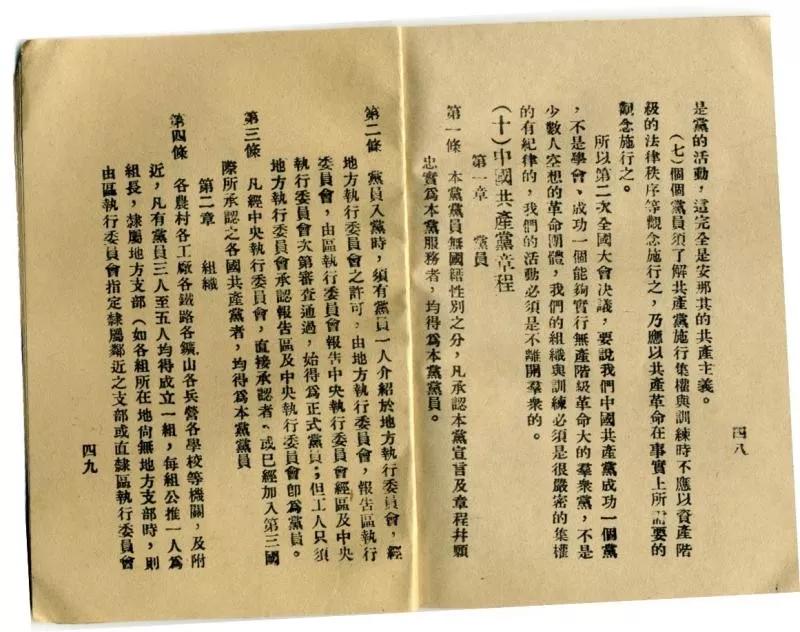 是黨的活動，這完全是安那其的共產主義。
（七）個個黨員須了解共產黨施行集權與訓練時不應以資產階
級的法律秩序等觀念施行之，乃應以共產革命在事實上所需要的
觀念施行之。
所以第二次全國大會決議，要說我們中國共產黨成功一個黨
，不是學會、成功一個能夠實行無產階級革命大的羣衆黨，不是
少數人空想的革命團體，我們的組織與訓練必須是很嚴密的集權
的有紀律的，我們的活動必須是不離開羣衆的。
（十）中國共產黨章程
第一章　黨員
第一條　本黨黨員無國籍性別之分，凡承認本黨宣言及章程幷願
忠實爲本黨服務者，均得爲本黨黨員。
四八
第二條　黨員入黨時，須有黨員一人介紹於地方執行委員會，經
地方執行委員會之許可，由地方執行委員會，報告區執行
委員會，由區執行委員會報告中央執行委員會經區及中央
執行委員會次第審查通過，始得爲正式黨員；但工人只須
地方執行委員會承認報告區及中央執行委員會卽爲黨員。
第三條　凡經中央執行委員會，直接承認者、或已經加入第三國
際所承認之各國共產黨者，均得爲本黨黨員
第二章　組織
第四條　各農村各工廠各鐵路各鑛山各兵營各學校等機關，及附
近，凡有黨員三人至五人均得成立一組，每組公推一人爲
組長，隸屬地方支部（如各組所在地尙無地方支部時，則
由區執行委員會指定隸屬鄰近之支部或直隸區執行委員會
四九